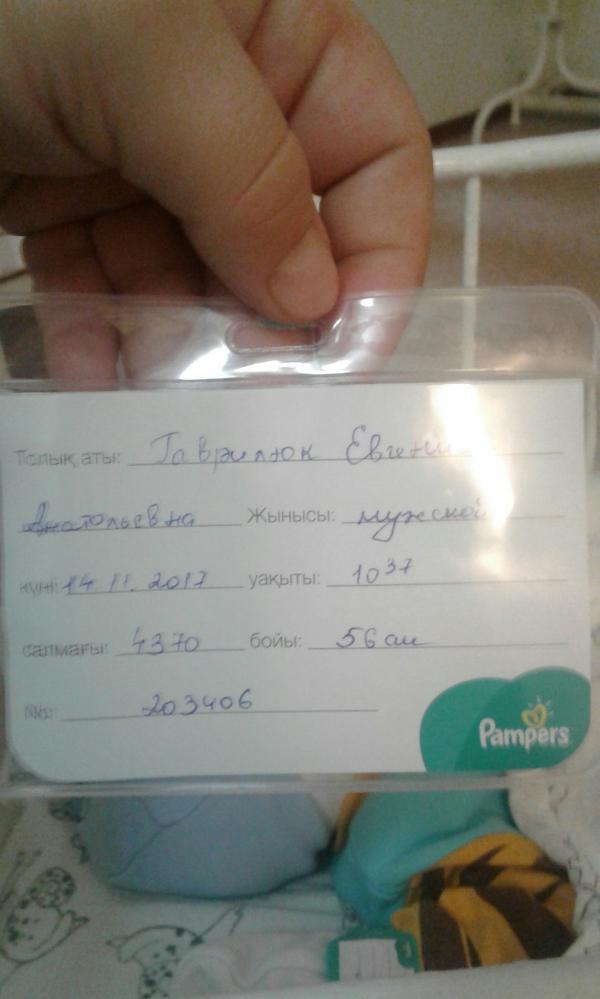 Толық аты: Гаврилюк Евгения
Анатольевна Жынысы: мужской
күні: 14 11. 2017 уақыты: 10 37
салмағы: 4370 бойы: 56 см
203406
Pampers